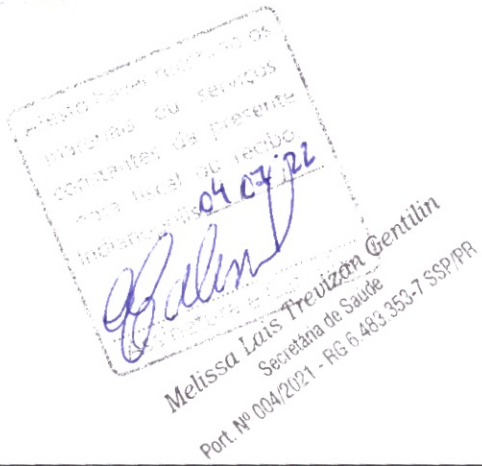 Atesto haver recebido os
materiais ou serviços
constantes da presente
nota fiscal ou recibo.
04 07 22
Melissa Lais Trevizan Gentilin
Secretária de Saúde
Port. Nº 004/2021 - RG 6.483.353-7 SSP/PR